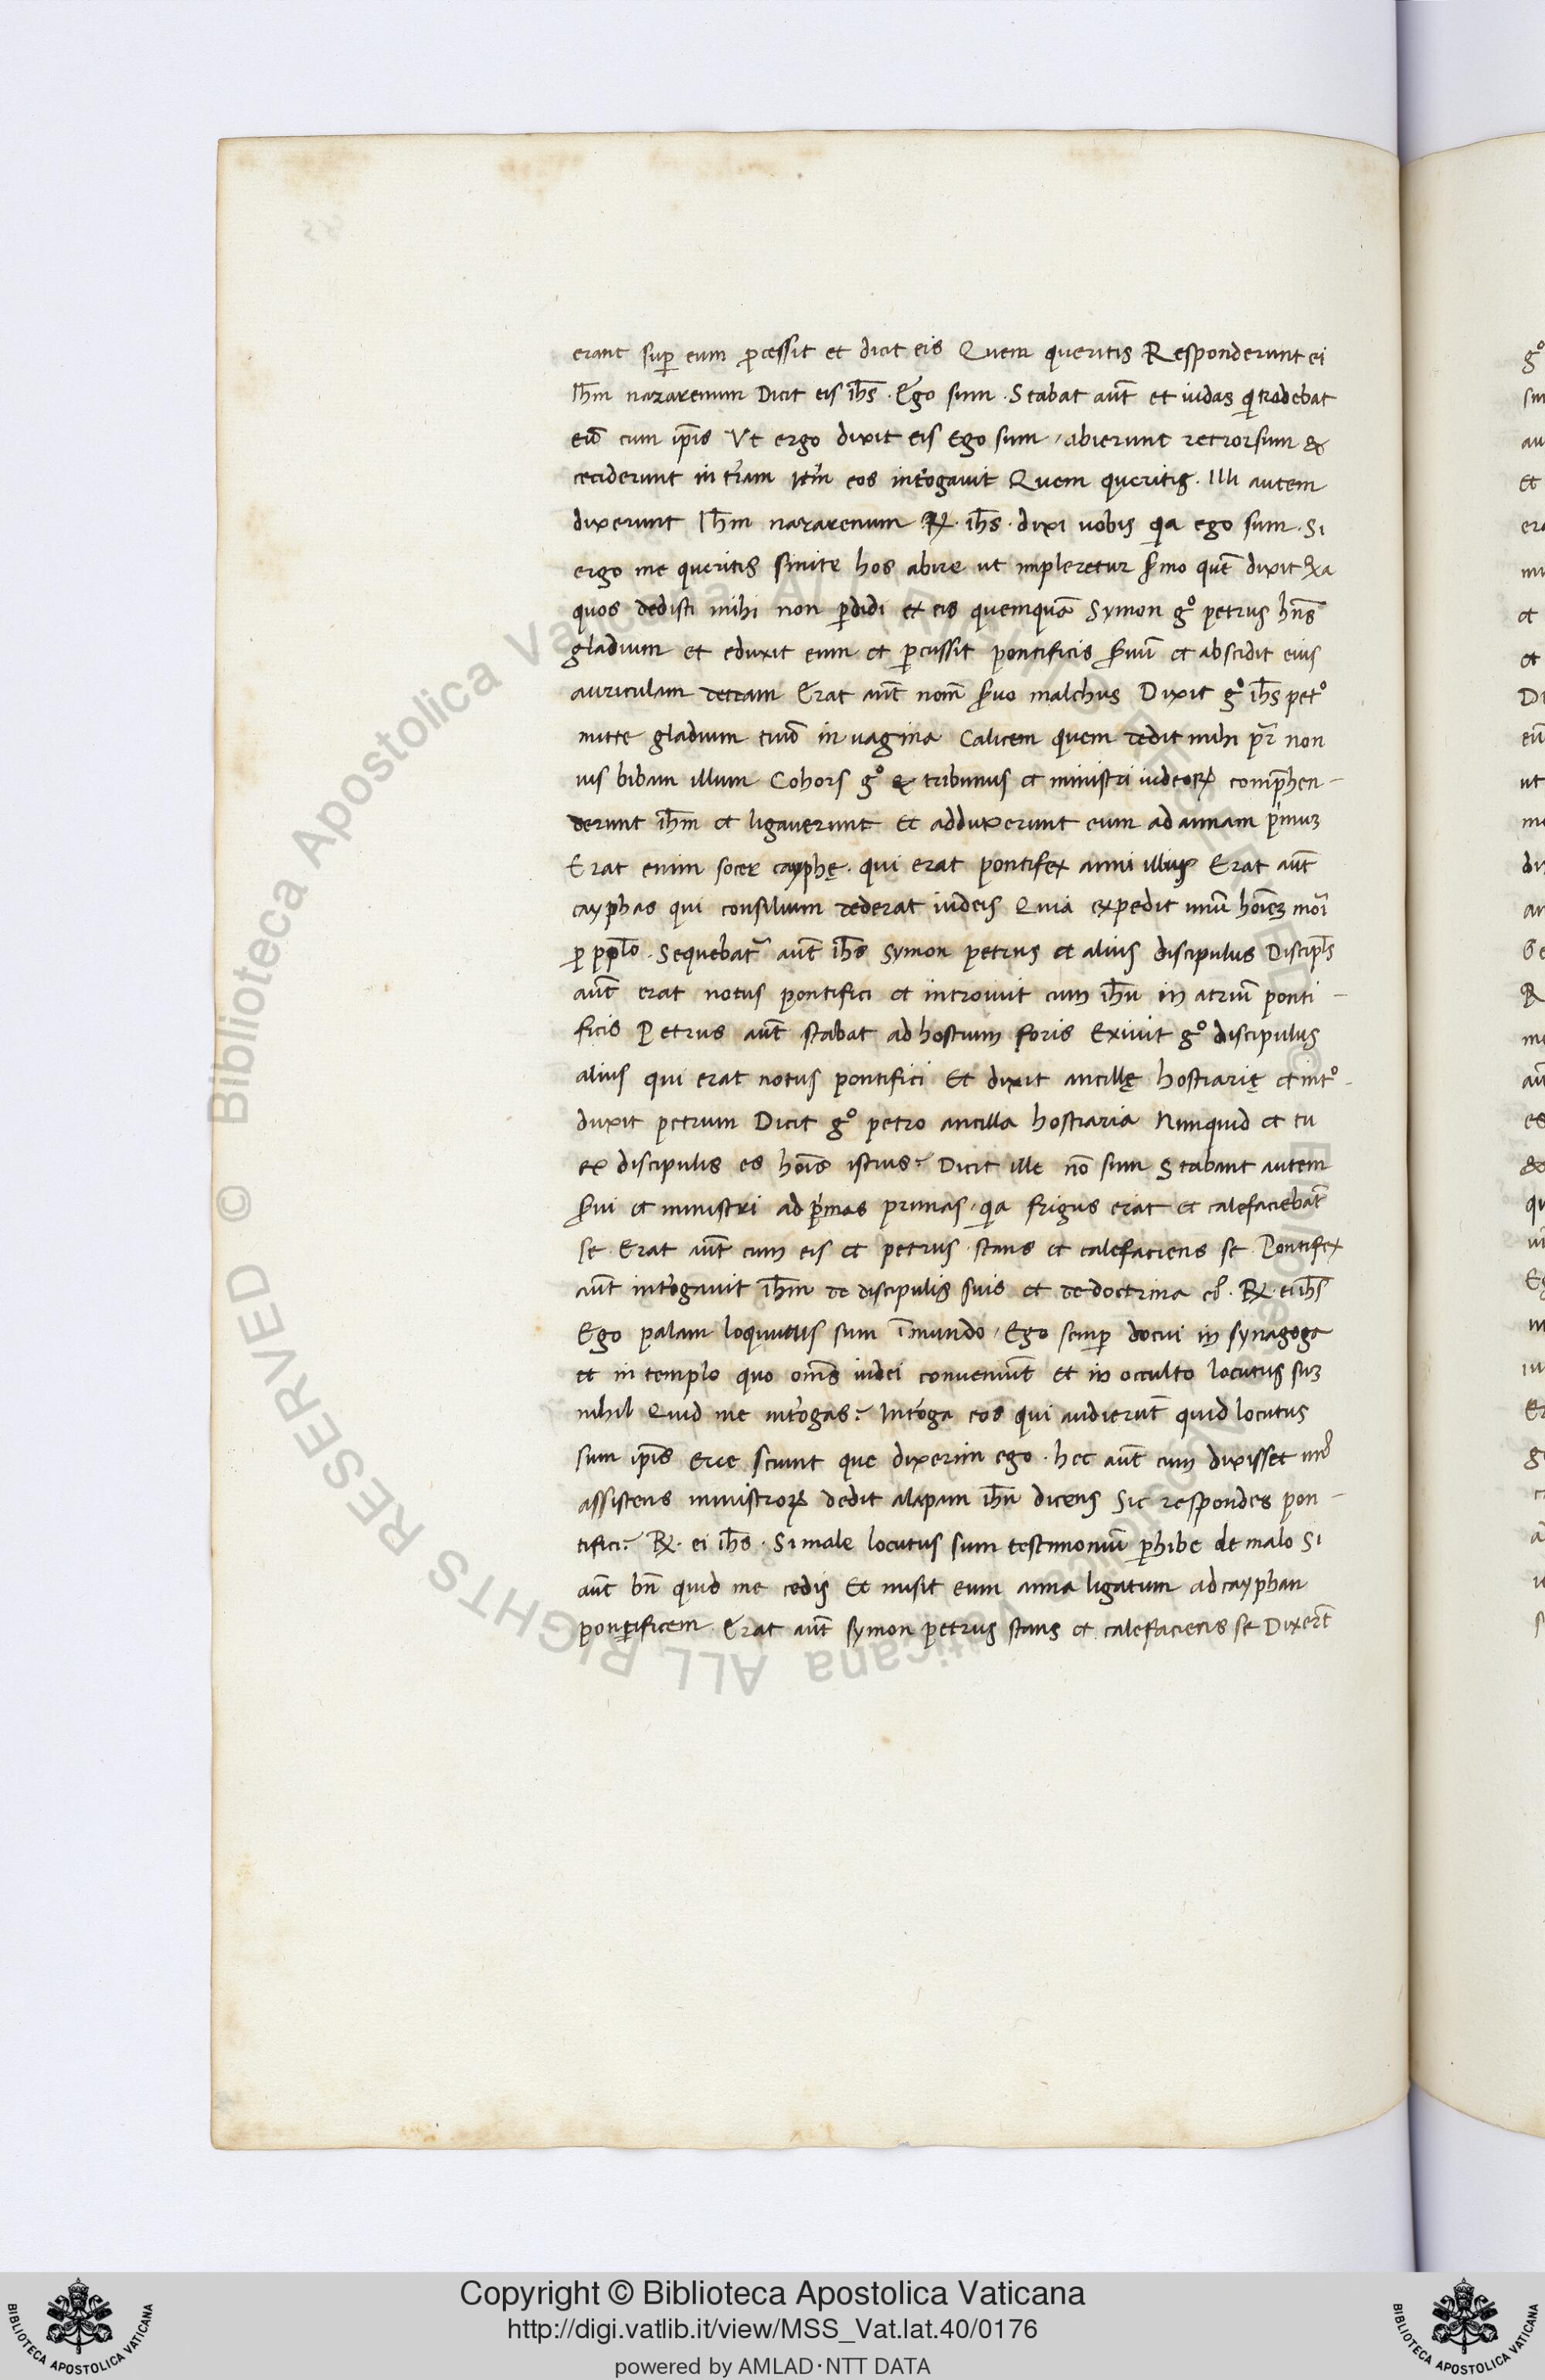 erant sup̱ eum ꝓcessit et dicit eis Quem queritis Responderunt ei
Ih̅m nazarenum Dicit eis ih̅s · Ego sum · Stabat aut̅ et iudas qͥ tradebat
eu̅ cum ip̅is Vt ergo dixit eis Ego sum / abierunt retrorsum &
ceciderunt in tr̅am Itm̅ eos int̓rogauit Quem queritis · Illi autem
dixerunt Ih̅m nazarenum ℞ · ih̅s · dixi uobis qͥa ego sum · Si
ergo me queritis sinite hos abire ut impleretur s̓mo que̅ dixit
quos dedisti mihi non ꝑdidi ex eis quemqua̅ Symon g° petrus hn̅s
gladium et eduxit eum et ꝑcussit pontificis s̓uu̅ et abscidit eius
auriculam Erat aut̅ nom̅ s̓uo malchus Dixit g° ih̅s pet°
mitte gladium tuu̅ in uagina Calicem quem dedit mihi pr̅ non
uis bibam illum Cohors g° & tribunus et ministri iudeoꝝ comp̅hen-
derunt ih̅m et ligauerunt Et adduxerunt eum ad annam pͥmuꝫ
Erat enim socer cayphę · qui erat pontifex anni illius Erat aut̅
cayphas qui consilium dederat iudeis Quia expedit unu̅ ho̅ieꝫ mori
ꝓ pplo̅ · Sequebatᷣ aut̅ ih̅s symon petrus et alius discipulus Discipl̅s
aut̅ erat notus pontifici et introiuit cum ih̅u in atriu̅ ponti-
ficis Petrus aut̅ stabat ad hostium foris Exiuit g° discipulus
alius qui erat notus pontifici Et dixit ancillę hostiarię et int°-
duxit petrum Dicit g° petro ancilla hostiaria Nunquid et tu
ex discipulis es ho̅is istius? Dicit ille no̅ sum Stabant autem
s̓ui et ministri ad pͥmas prunas / qͥa frigus erat et calefaciebat̅
se · Erat aut̅ cum eis et petrus · stans et calefaciens se · Pontifex
aut̅ int̓rogauit ih̅m de discipulis suis et de doctrina ei᷒ · ℞ · ei ih̅s
Ego palam loquutus sum i̅ mundo / Ego semp̱ docui in synagoga
et in templo quo om̅s iudei conueniu̅t et in occulto locutus suꝫ
nihil Quid me int̓rogas? Int̓roga eos qui audieru̅t quid locutus
sum ip̅is Ecce sciunt que dixerim ego · hec aut̅ cum dixisset un᷒
assistens ministroꝝ dedit alapam ih̅u dicens Sic respondes pon-
tifici? ℞ · ei ih̅s · Si male locutus sum testimoniu̅ ꝑhibe de malo Si
aut̅ bn̅ quid me cedis Et misit eum anna ligatum ad cayphan
pontificem · Erat aut̅ symon petrus stans et calefaciens se Dixer̅t
Copyright © Biblioteca Apostolica Vaticana
http://digi.vatlib.it/view/MSS_Vat.lat.40/0176
powered by AMLAD·NTT DATA
BIBLIOTECA APOSTOLICA VATICANA
BIBLIOTECA APOSTOLICA VATICANA